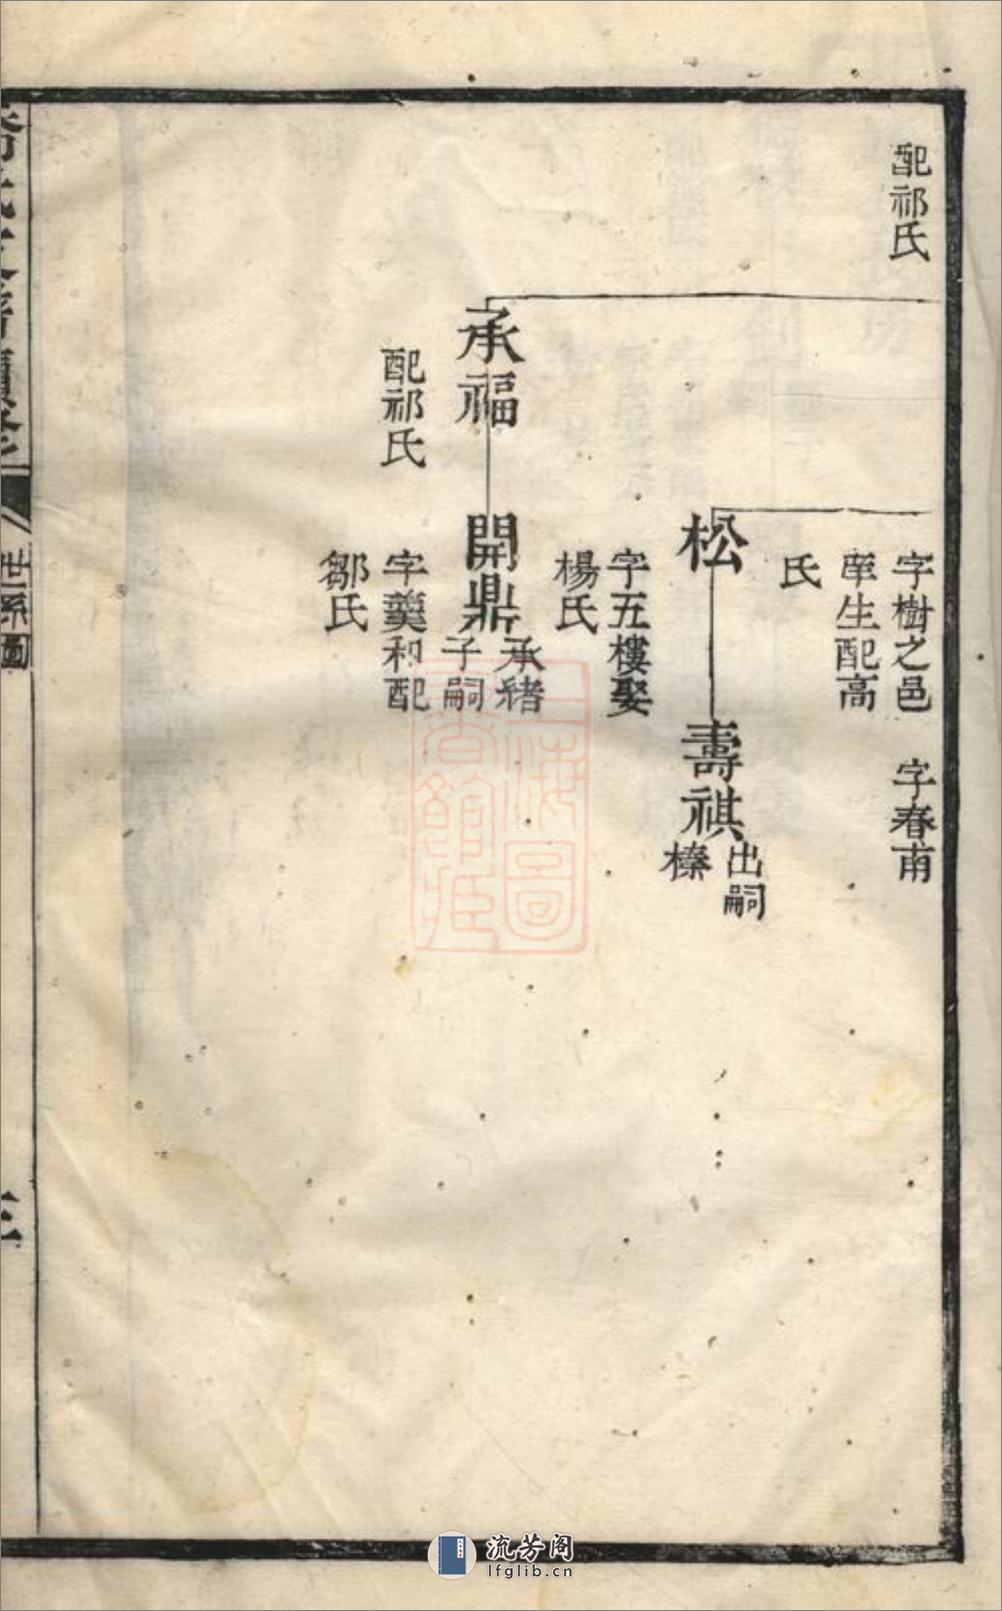 配祁氏
字樹之邑
庠生配高
氏
字春甫
松
字五樓娶
楊氏
壽祺
出嗣
榛
承福
配祁氏
開鼎
承緒
子嗣
字羹和配
鄒氏
世系圖
上海圖
書館藏
流芳阁
lfglib.cn